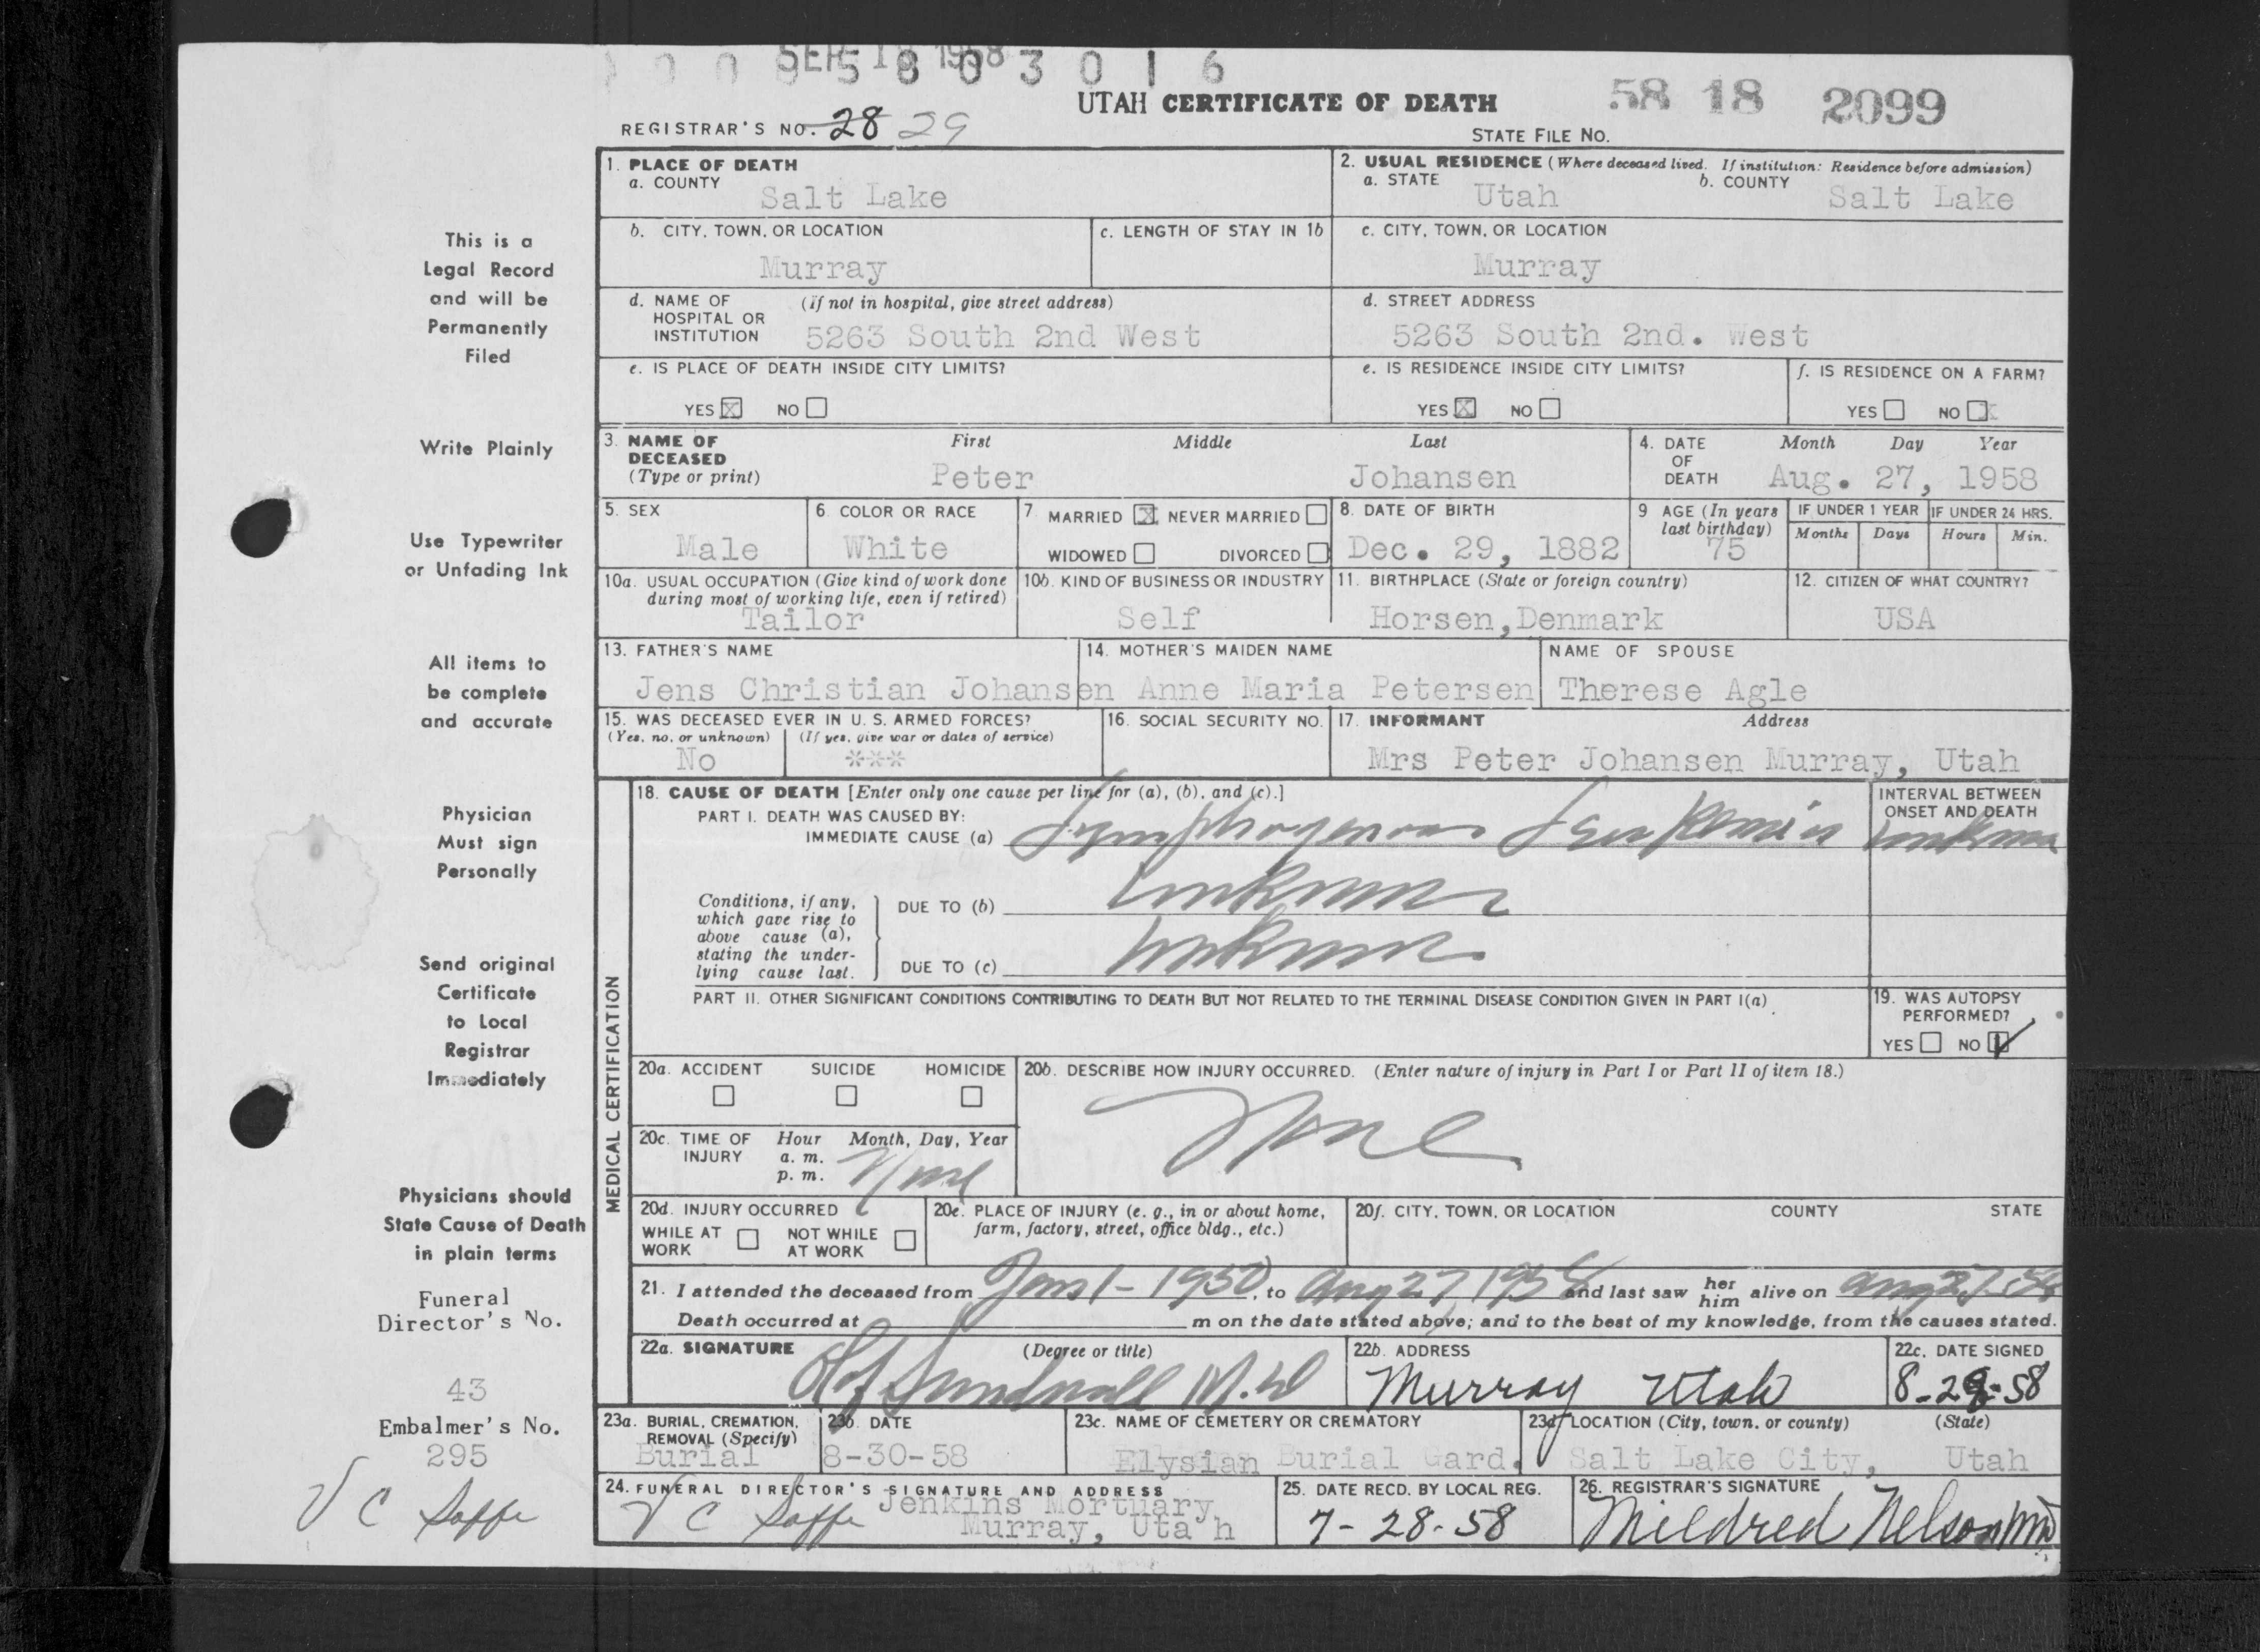 SEP 18 1958
0 0 0 5 8 0 3 0 1 6
UTAH CERTIFICATE OF DEATH
58 18 2099
REGISTRAR'S NO. 28 29
STATE FILE NO.
1. PLACE OF DEATH
a. COUNTY Salt Lake
2. USUAL RESIDENCE (Where deceased lived. If institution: Residence before admission)
a. STATE Utah b. COUNTY Salt Lake
b. CITY, TOWN, OR LOCATION Murray
c. LENGTH OF STAY IN 1b
c. CITY, TOWN, OR LOCATION Murray
d. NAME OF HOSPITAL OR INSTITUTION (If not in hospital, give street address)
5263 South 2nd West
d. STREET ADDRESS
5263 South 2nd. West
e. IS PLACE OF DEATH INSIDE CITY LIMITS?
YES X NO
e. IS RESIDENCE INSIDE CITY LIMITS?
YES X NO
f. IS RESIDENCE ON A FARM?
YES NO X
3. NAME OF DECEASED (Type or print) First Middle Last
Peter Johansen
4. DATE OF DEATH Month Day Year
Aug. 27, 1958
5. SEX
Male
6. COLOR OR RACE
White
7. MARRIED X NEVER MARRIED
WIDOWED DIVORCED
8. DATE OF BIRTH
Dec. 29, 1882
9 AGE (In years last birthday)
75
IF UNDER 1 YEAR IF UNDER 24 HRS.
Months Days Hours Min.
10a. USUAL OCCUPATION (Give kind of work done during most of working life, even if retired)
Tailor
10b. KIND OF BUSINESS OR INDUSTRY
Self
11. BIRTHPLACE (State or foreign country)
Horsen,Denmark
12. CITIZEN OF WHAT COUNTRY?
USA
13. FATHER'S NAME
Jens Christian Johansen
14. MOTHER'S MAIDEN NAME
Anne Maria Petersen
NAME OF SPOUSE
Therese Agle
15. WAS DECEASED EVER IN U. S. ARMED FORCES?
(Yes, no, or unknown) (If yes, give war or dates of service)
No ***
16. SOCIAL SECURITY NO.
17. INFORMANT Address
Mrs Peter Johansen Murray, Utah
MEDICAL CERTIFICATION
18. CAUSE OF DEATH [Enter only one cause per line for (a), (b), and (c).]
PART I. DEATH WAS CAUSED BY:
IMMEDIATE CAUSE (a) Lymphogenous Leukemia
INTERVAL BETWEEN ONSET AND DEATH
unknown
Conditions, if any, which gave rise to above cause (a), stating the underlying cause last.
DUE TO (b) unknown
DUE TO (c) unknown
PART II. OTHER SIGNIFICANT CONDITIONS CONTRIBUTING TO DEATH BUT NOT RELATED TO THE TERMINAL DISEASE CONDITION GIVEN IN PART I(a)
19. WAS AUTOPSY PERFORMED?
YES NO ✓
20a. ACCIDENT SUICIDE HOMICIDE
20b. DESCRIBE HOW INJURY OCCURRED. (Enter nature of injury in Part I or Part II of item 18.)
None
20c. TIME OF INJURY Hour Month, Day, Year
a. m.
p. m.
None
20d. INJURY OCCURRED
WHILE AT WORK NOT WHILE AT WORK
20e. PLACE OF INJURY (e. g., in or about home, farm, factory, street, office bldg., etc.)
20f. CITY, TOWN, OR LOCATION COUNTY STATE
21. I attended the deceased from Jan 1 - 1950, to Aug 27 1958 and last saw her him alive on Aug 27-58
Death occurred at m on the date stated above; and to the best of my knowledge, from the causes stated.
22a. SIGNATURE (Degree or title)
Sundwall M.D
22b. ADDRESS
Murray Utah
22c. DATE SIGNED
8-28-58
23a. BURIAL, CREMATION, REMOVAL (Specify)
Burial
23b. DATE
8-30-58
23c. NAME OF CEMETERY OR CREMATORY
Elysian Burial Gard.
23d LOCATION (City, town, or county) (State)
Salt Lake City, Utah
24. FUNERAL DIRECTOR'S SIGNATURE AND ADDRESS
V C
Jenkins Mortuary
Murray, Utah
25. DATE RECD. BY LOCAL REG.
7-28-58
26. REGISTRAR'S SIGNATURE
Mildred Nelson
This is a
Legal Record
and will be
Permanently
Filed
Write Plainly
Use Typewriter
or Unfading Ink
All items to
be complete
and accurate
Physician
Must sign
Personally
Send original
Certificate
to Local
Registrar
Immediately
Physicians should
State Cause of Death
in plain terms
Funeral
Director's No.
43
Embalmer's No.
295
V C